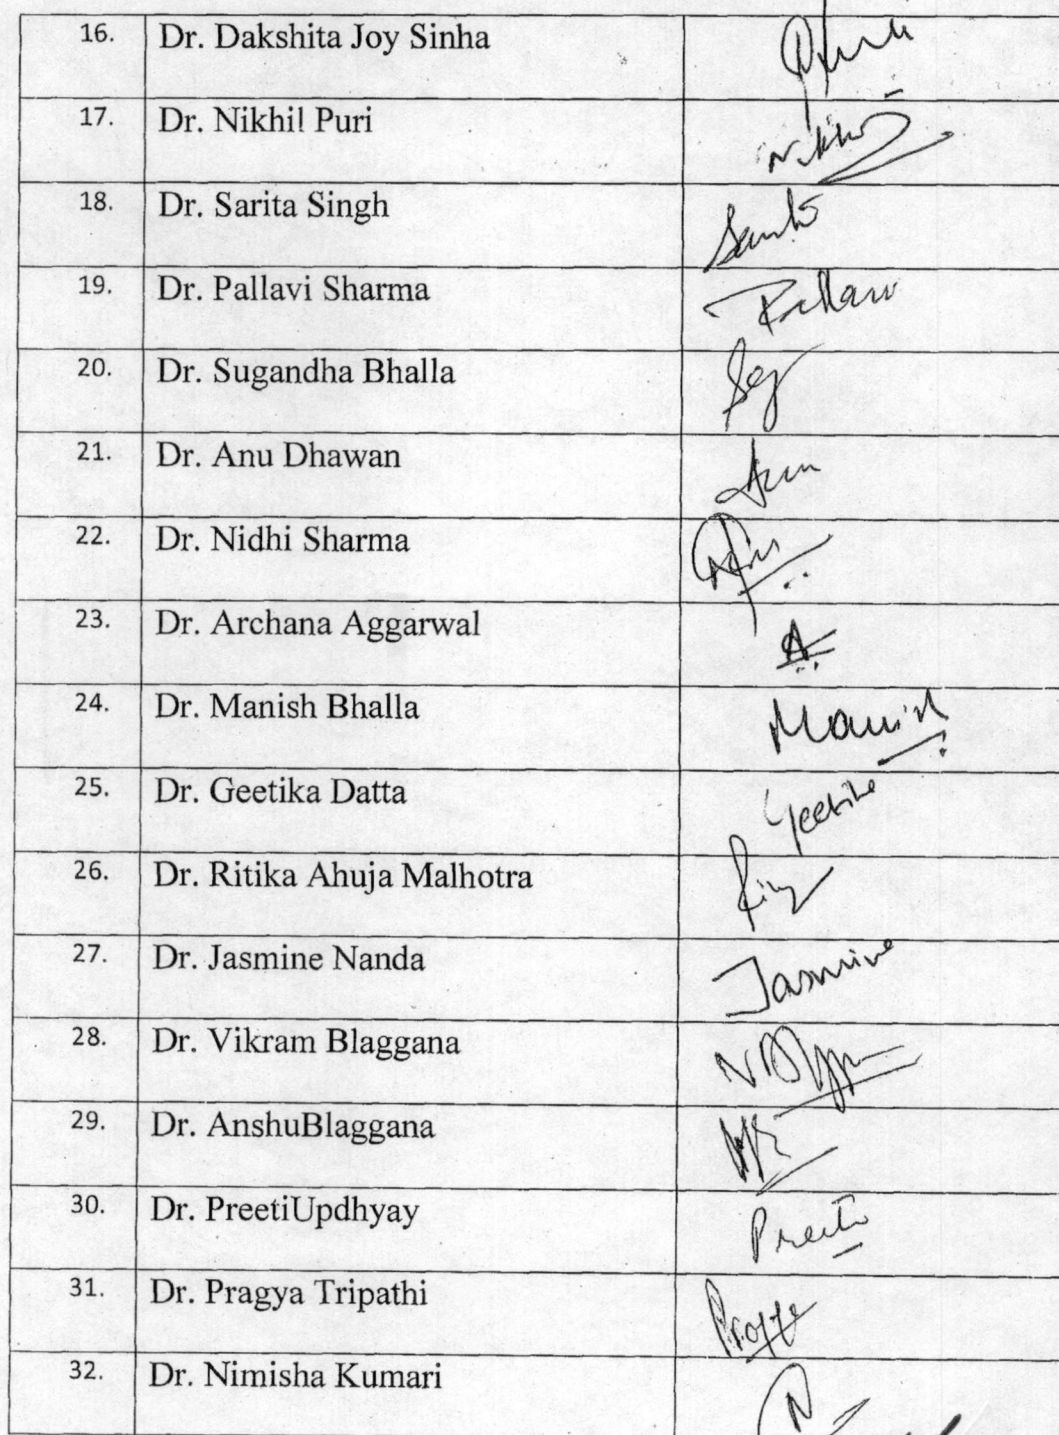 16. Dr. Dakshita Joy Sinha
17. Dr. Nikhil Puri Nikhil
18. Dr. Sarita Singh Sarita
19. Dr. Pallavi Sharma Pallavi
20. Dr. Sugandha Bhalla
21. Dr. Anu Dhawan Anu
22. Dr. Nidhi Sharma
23. Dr. Archana Aggarwal A
24. Dr. Manish Bhalla Manish
25. Dr. Geetika Datta Geetika
26. Dr. Ritika Ahuja Malhotra
27. Dr. Jasmine Nanda Jasmine
28. Dr. Vikram Blaggana
29. Dr. AnshuBlaggana
30. Dr. PreetiUpdhyay Preeti
31. Dr. Pragya Tripathi Pragya
32. Dr. Nimisha Kumari N